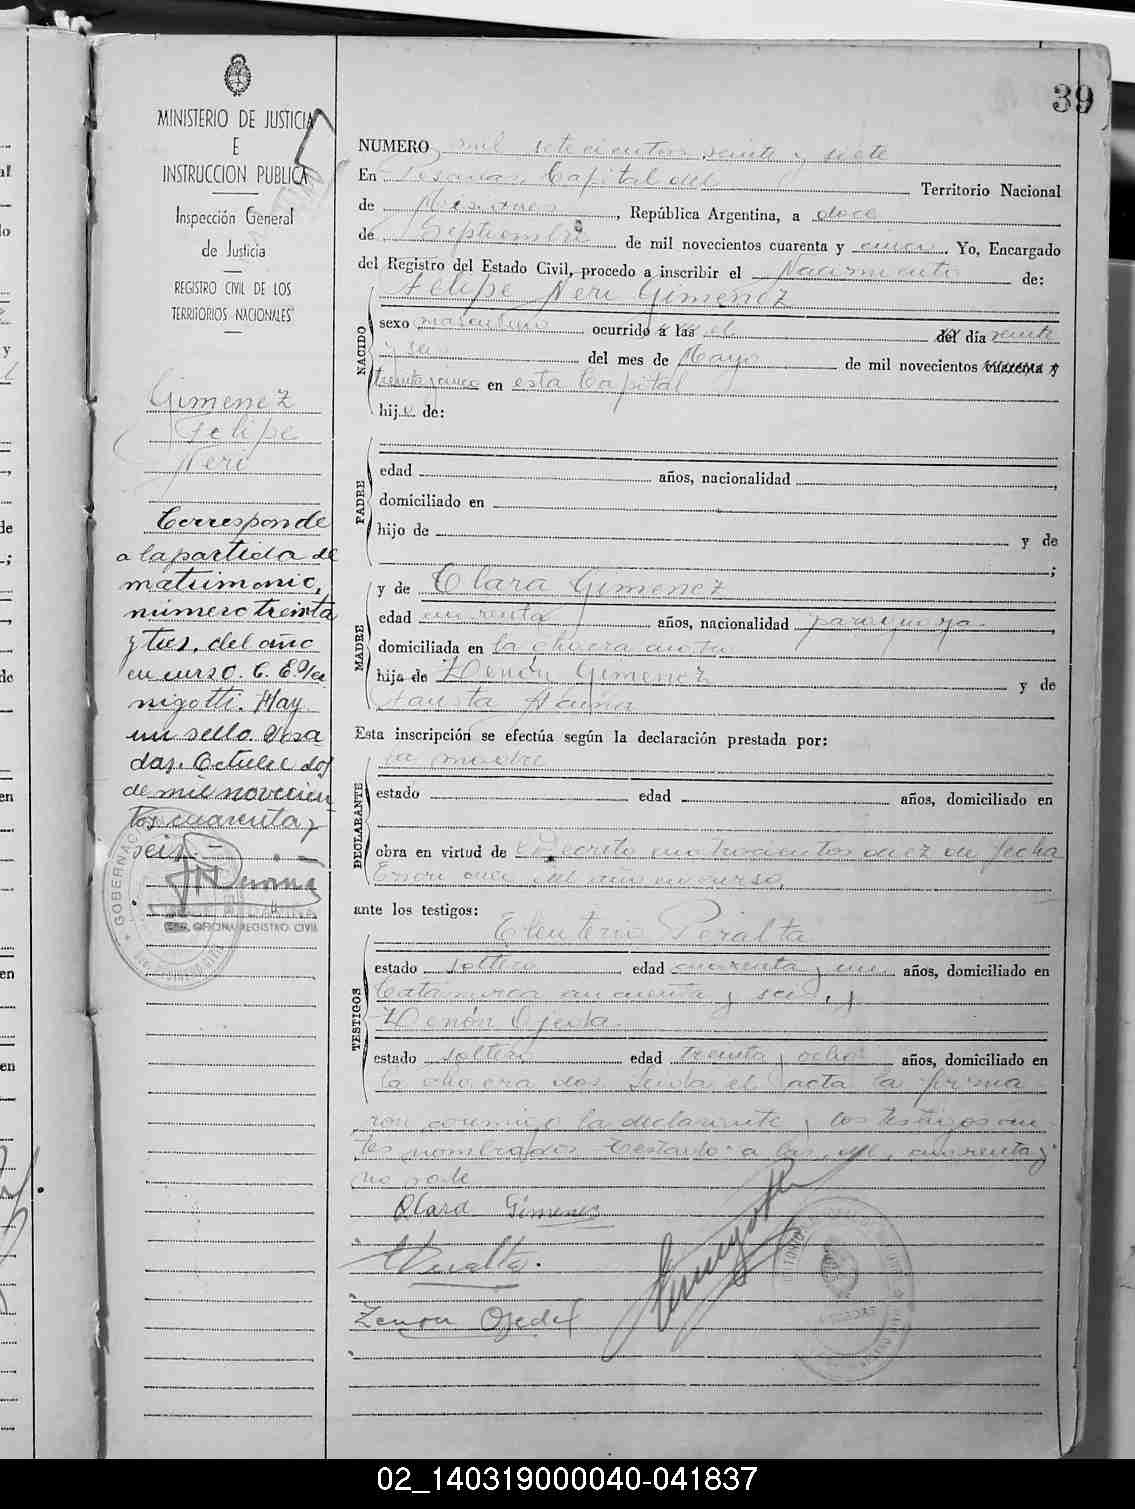 39
MINISTERIO DE JUSTICIA
E
INSTRUCCION PUBLICA
Inspección General
de Justicia
REGISTRO CIVIL DE LOS
TERRITORIOS NACIONALES
Gimenez
Felipe
Neri
Corresponde
a la partida de
matrimonio,
número treinta
y tres, del año
en curso. C. E. Ve
nigotti. Hay
un sello. Posa
das, Octubre dos
de mil novecien
tos cuarenta y
seis.-
GOBERNAC
OFICINA REGISTRO CIVIL
NUMERO mil setecientos veinte y siete
En Posadas, Capital del Territorio Nacional
de Misiones, República Argentina, a doce
de Septiembre de mil novecientos cuarenta y cinco. Yo, Encargado
del Registro del Estado Civil, procedo a inscribir el Nacimiento de:
Felipe Neri Gimenez
NACIDO
sexo masculino ocurrido a las el del día veinte
y seis del mes de Mayo de mil novecientos cuarenta y
treinta y cinco en esta Capital
hijo de:
PADRE
edad años, nacionalidad ,
domiciliado en
hijo de y de
;
MADRE
y de Clara Gimenez
edad cuarenta años, nacionalidad paraguaya
domiciliada en la chacra
hija de Zenón Gimenez y de
Fausta Acuña
Esta inscripción se efectúa según la declaración prestada por:
DECLARANTE
la madre
estado edad años, domiciliado en
obra en virtud de Decreto cuatrocientos diez de fecha
Enero del año en curso,
ante los testigos:
TESTIGOS
Eleuterio Peralta
estado soltero edad cuarenta y un años, domiciliado en
Catamarca cincuenta y seis, y
Zenón Ojeda
estado soltero edad treinta y ocho años, domiciliado en
la chacra dos. Leida el acta la firma
ron conmigo la declarante y los testigos an
tes nombrados. Testado: a las, del, cuarenta y
no vale
Clara Gimenez
EPeralta.
Zenon Ojeda
02_140319000040-041837